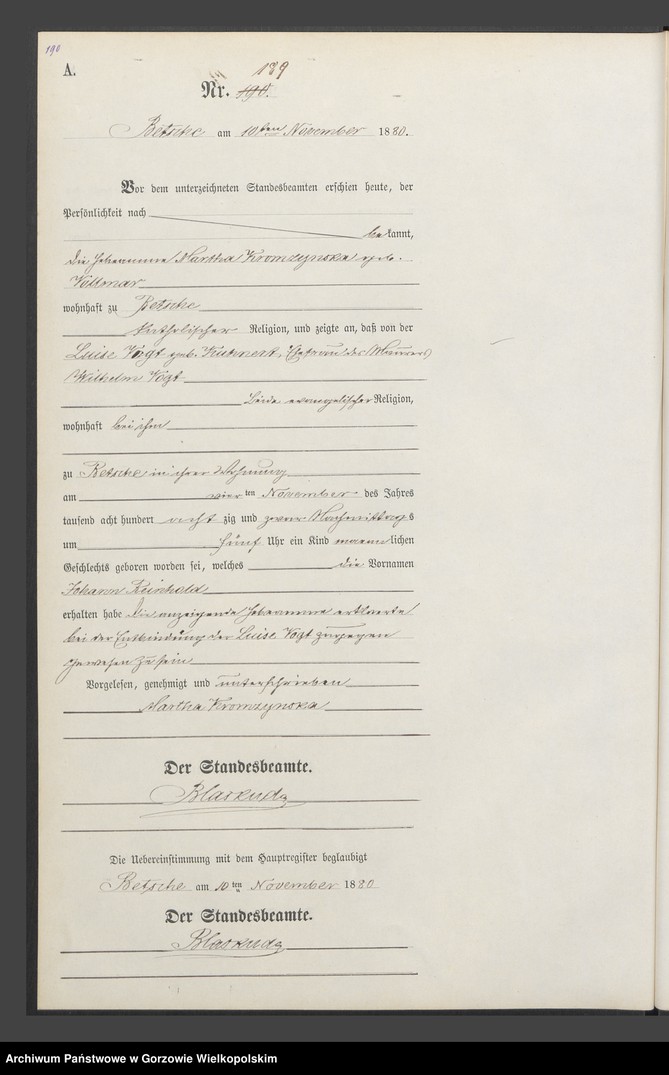 190
A.
189
Nr. 190.
Betsche am 10ten November 1880.
Vor dem unterzeichneten Standesbeamten erschien heute, der
Persönlichkeit nach
bekannt,
die Hebamme Martha Kromzynska geb.
Vollmar
wohnhaft zu Betsche
katholischer Religion, und zeigte an, daß von der
Luise Vogt geb. Kuhnert, Ehefrau des Maurers
Wilhelm Vogt
beide evangelischer Religion,
wohnhaft bei ihm
zu Betsche in ihrer Wohnung
am vier ten November des Jahres
tausend acht hundert acht zig und zwar Nachmittags
um fünf Uhr ein Kind maennlichen
Geschlechts geboren worden sei, welches die Vornamen
Johann Reinhold
erhalten habe die anzeigende Hebamme erklaerte
bei der Entbindung der Luise Vogt zugegen
gewesen zu sein
Vorgelesen, genehmigt und unterschrieben
Martha Kromzynska
Der Standesbeamte.
Die Uebereinstimmung mit dem Hauptregister beglaubigt
Betsche am 10ten November 1880
Der Standesbeamte.
Archiwum Państwowe w Gorzowie Wielkopolskim